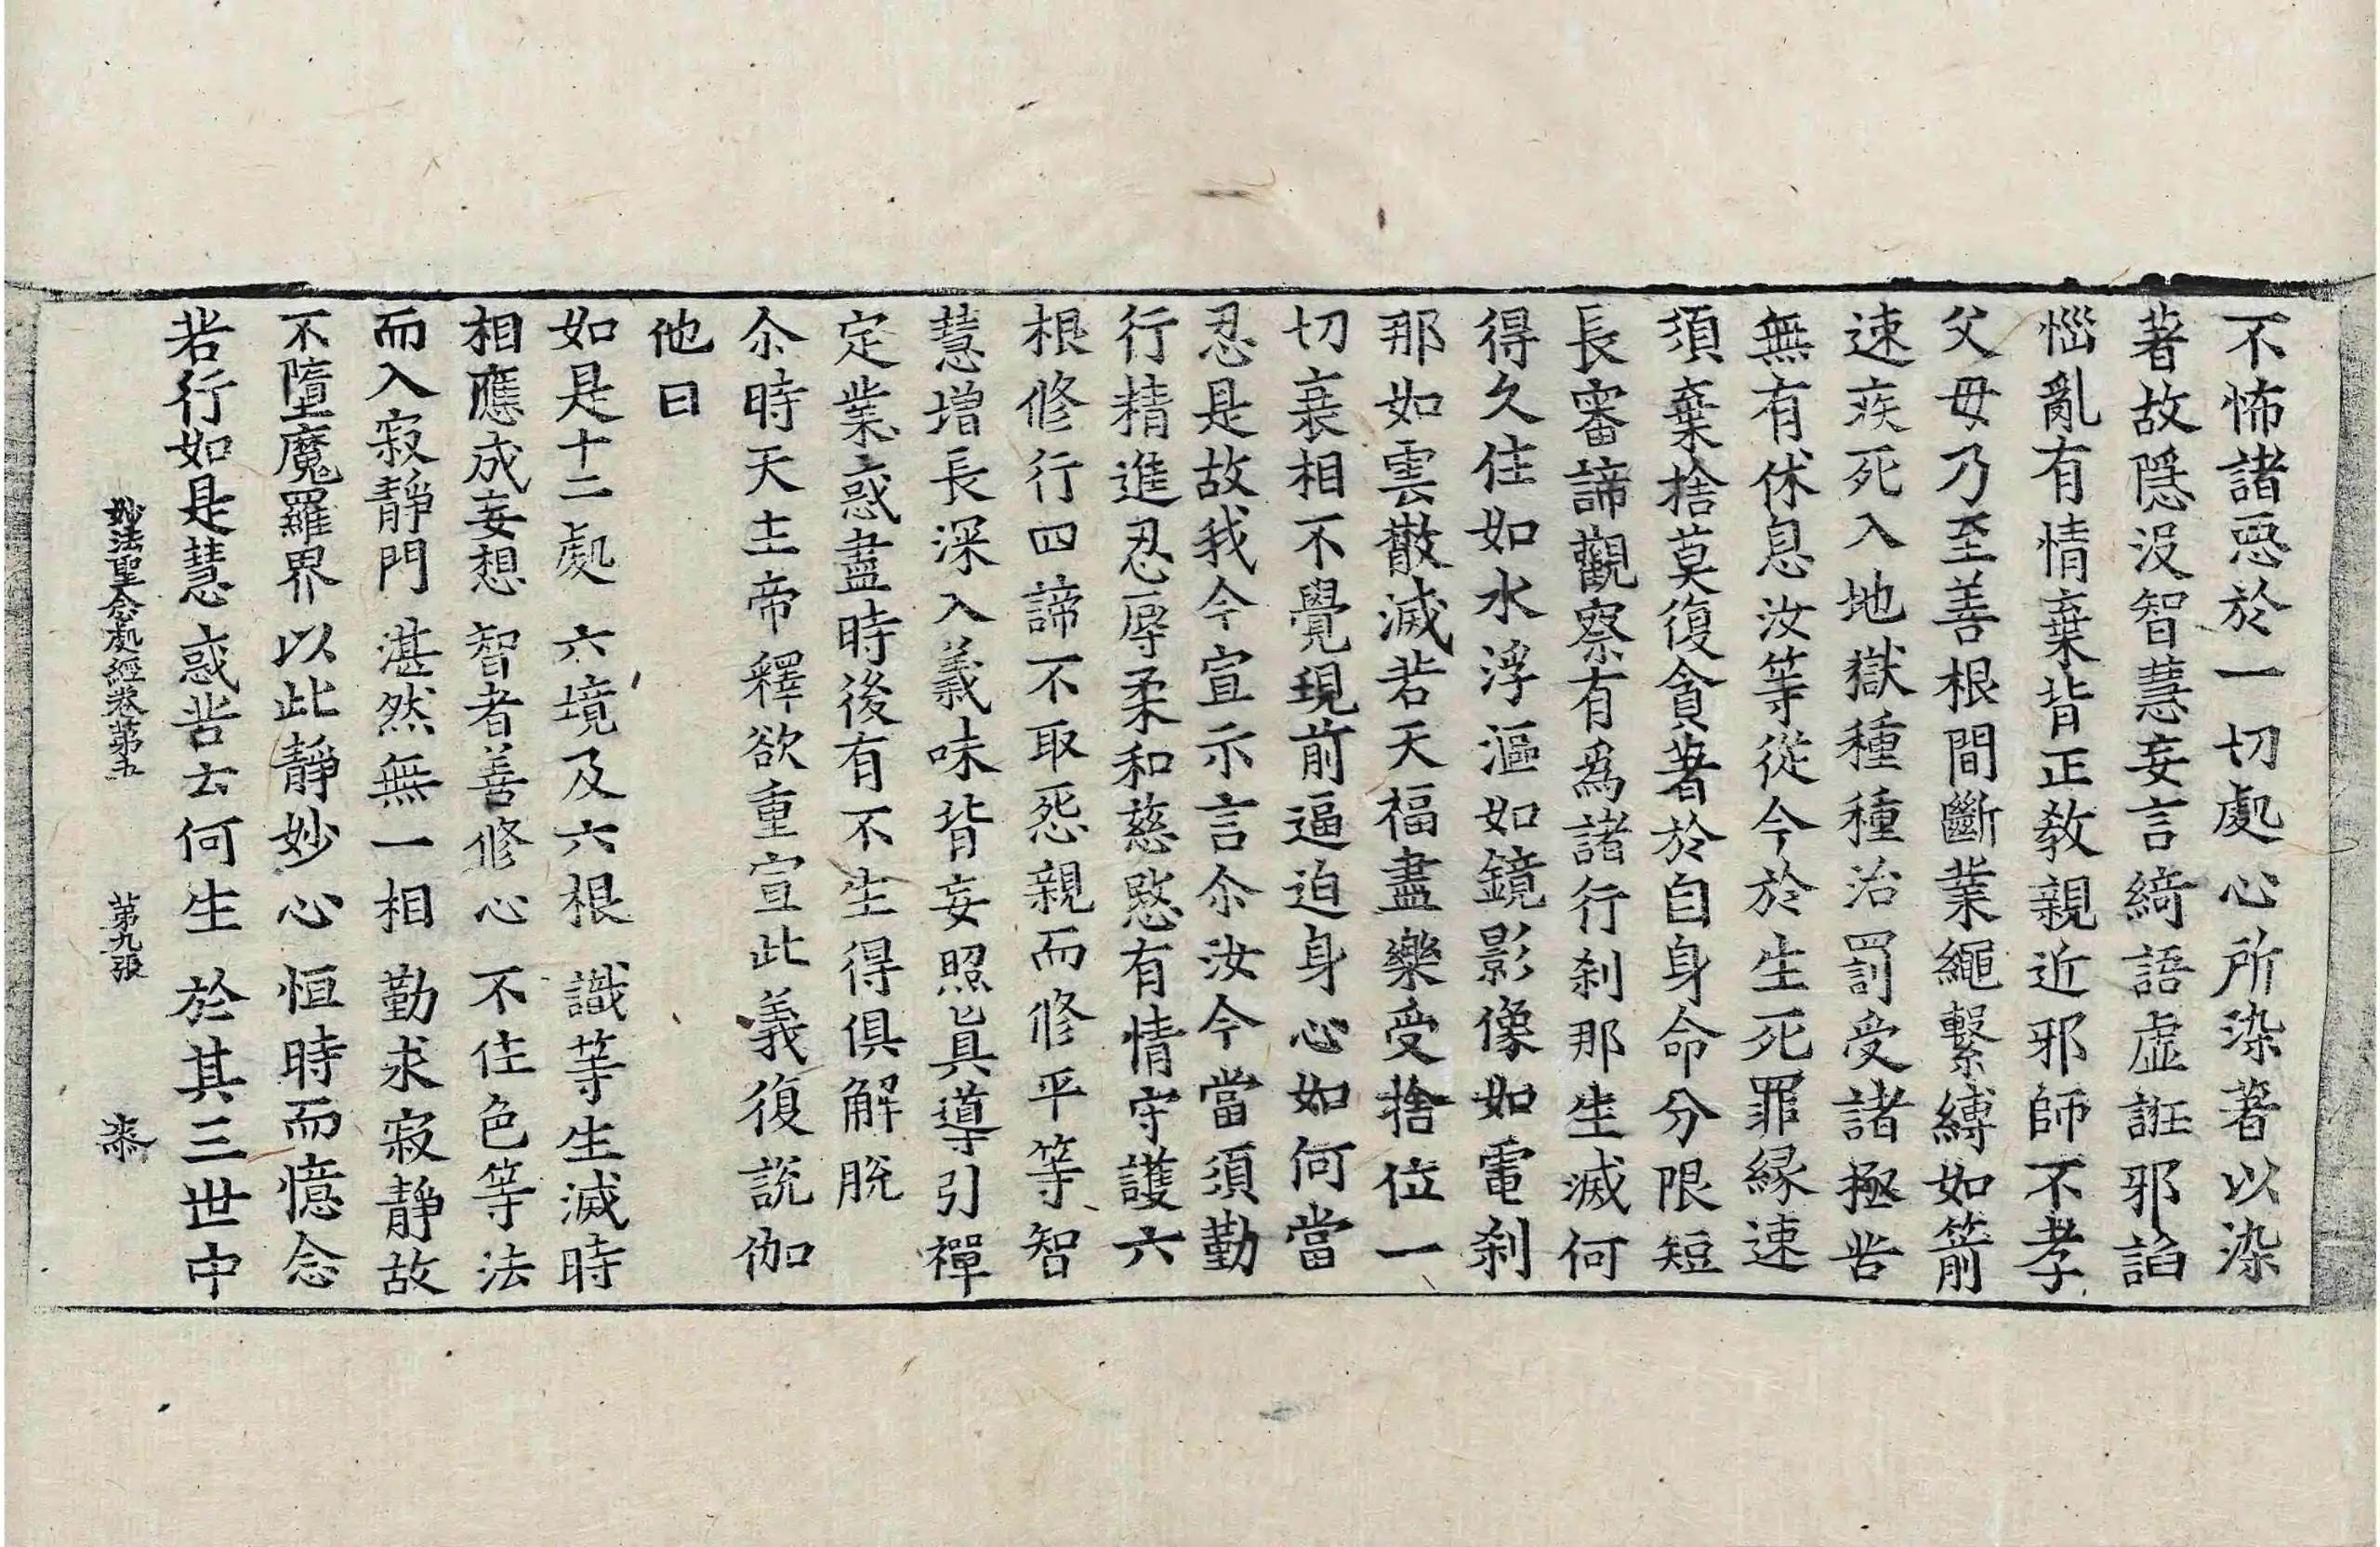 不怖諸惡於一切處心所染著以染
著故隱沒智慧妄言綺語虛誑邪諂
惱亂有情棄背正教親近邪師不孝
父母乃至善根間斷業繩繫縛如箭
速疾死入地獄種種治罰受諸極苦
無有休息汝等從今於生死罪縁速
須棄捨莫復貪著於自身命分限短
長審諦觀察有為諸行刹那生滅何
得久住如水浮漚如鏡影像如電刹
那如雲散滅若天福盡樂受捨位一
切衰相不覺現前逼迫身心如何當
忍是故我今宣示言尒汝今當須勤
行精進忍辱柔和慈愍有情守護六
根修行四諦不取怨親而修平等智
慧增長深入義味背妄照眞導引禪
定業惑盡時後有不生得俱解脫
尒時天主帝釋欲重宣此義復說伽
他曰
如是十二處 六境及六根 識等生滅時
相應成妄想 智者善修心 不住色等法
而入寂靜門 湛然無一相 勤求寂靜故
不墮魔羅界 以此靜妙心 恒時而憶念
若行如是慧 惑苦去何生 於其三世中
妙法聖念處經卷第五 第九張